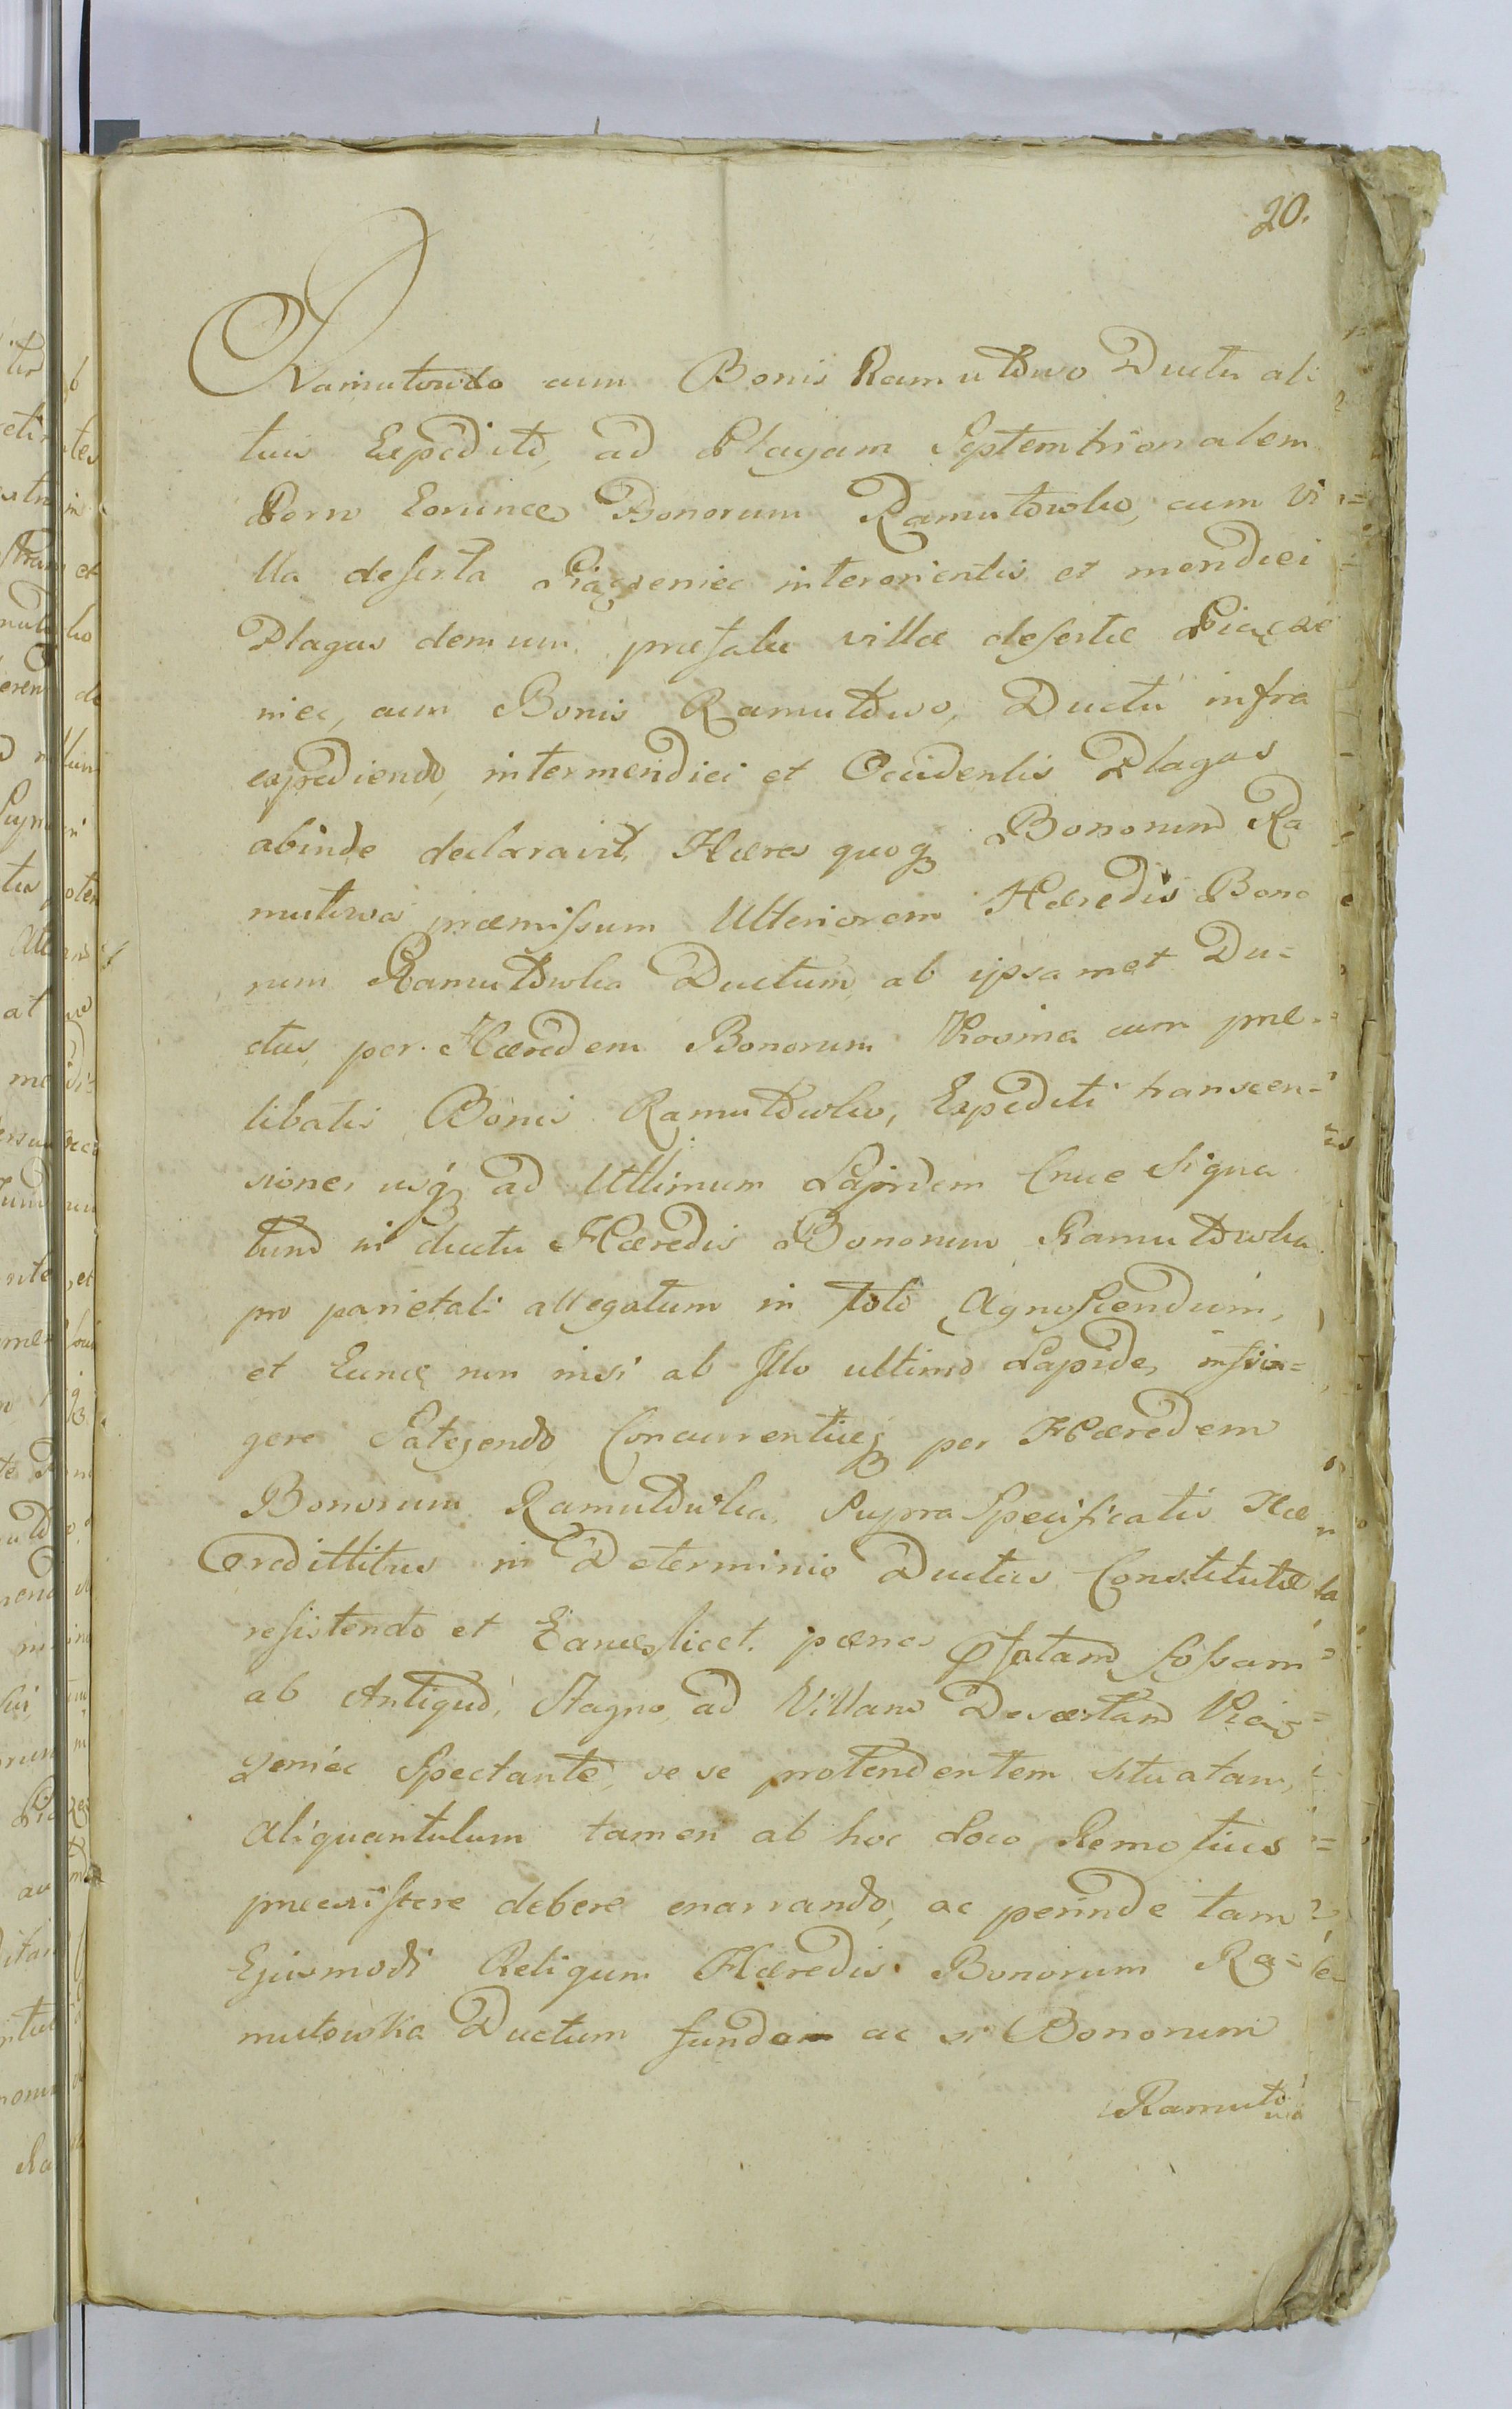 20.
Ramutowko cum Bonis Ramutowo Ductu ali
tuis Expedito, ad Plagam Septemtrionalem
Porro Eorundem Bonorum Ramutowko, cum Vi
lla deserta Piączeniec inter orientis et meridiei
Plagas demum præfatæ villæ desertæ Piącze
niec, cum Bonis Ramutowo, Ductu infra
expediendo, inter meridiei et Occidentis Plagas
abinde declaravit, Hæres quoq Bonorum Ra
mutowa præmissum Ulteriorem Hæredis Bono
rum Ramutowka Ductum, ab ipsamet Du=
ctus, per Hæredem Bonorum cum præ=
libatis Bonis Ramutowko, Expediti transcen=
sione, usq ad Ultimum Lapidem Cruce Signa
tum in ductu Hæredis Bonorum Ramutowka
pro parietali allegatum in toto Agnoscendum,
et Eunc non nisi ab Illo ultimo Lapide, infrin=
gere Satagendo, Concurrentiæq per Hæredem
Bonorum Ramutowka, Supra Specificatis Hæ
redittibus in Determinio Ductus Constitutæ
resistendo et Eam licet penes Pfatam fossam
ab Antiquo, Stagno, ad Villam Desertam Piąc=
zeniec Spectante, se se protendentem situatam,
Aliquantulum tamen ab hoc Loco Remotius
præexistere debere enarrando, ac perinde tam
Ejusmodi Reliqum Hæredis Bonorum Ra=
mutowka Ductum ac si Bonorum
Ramuto